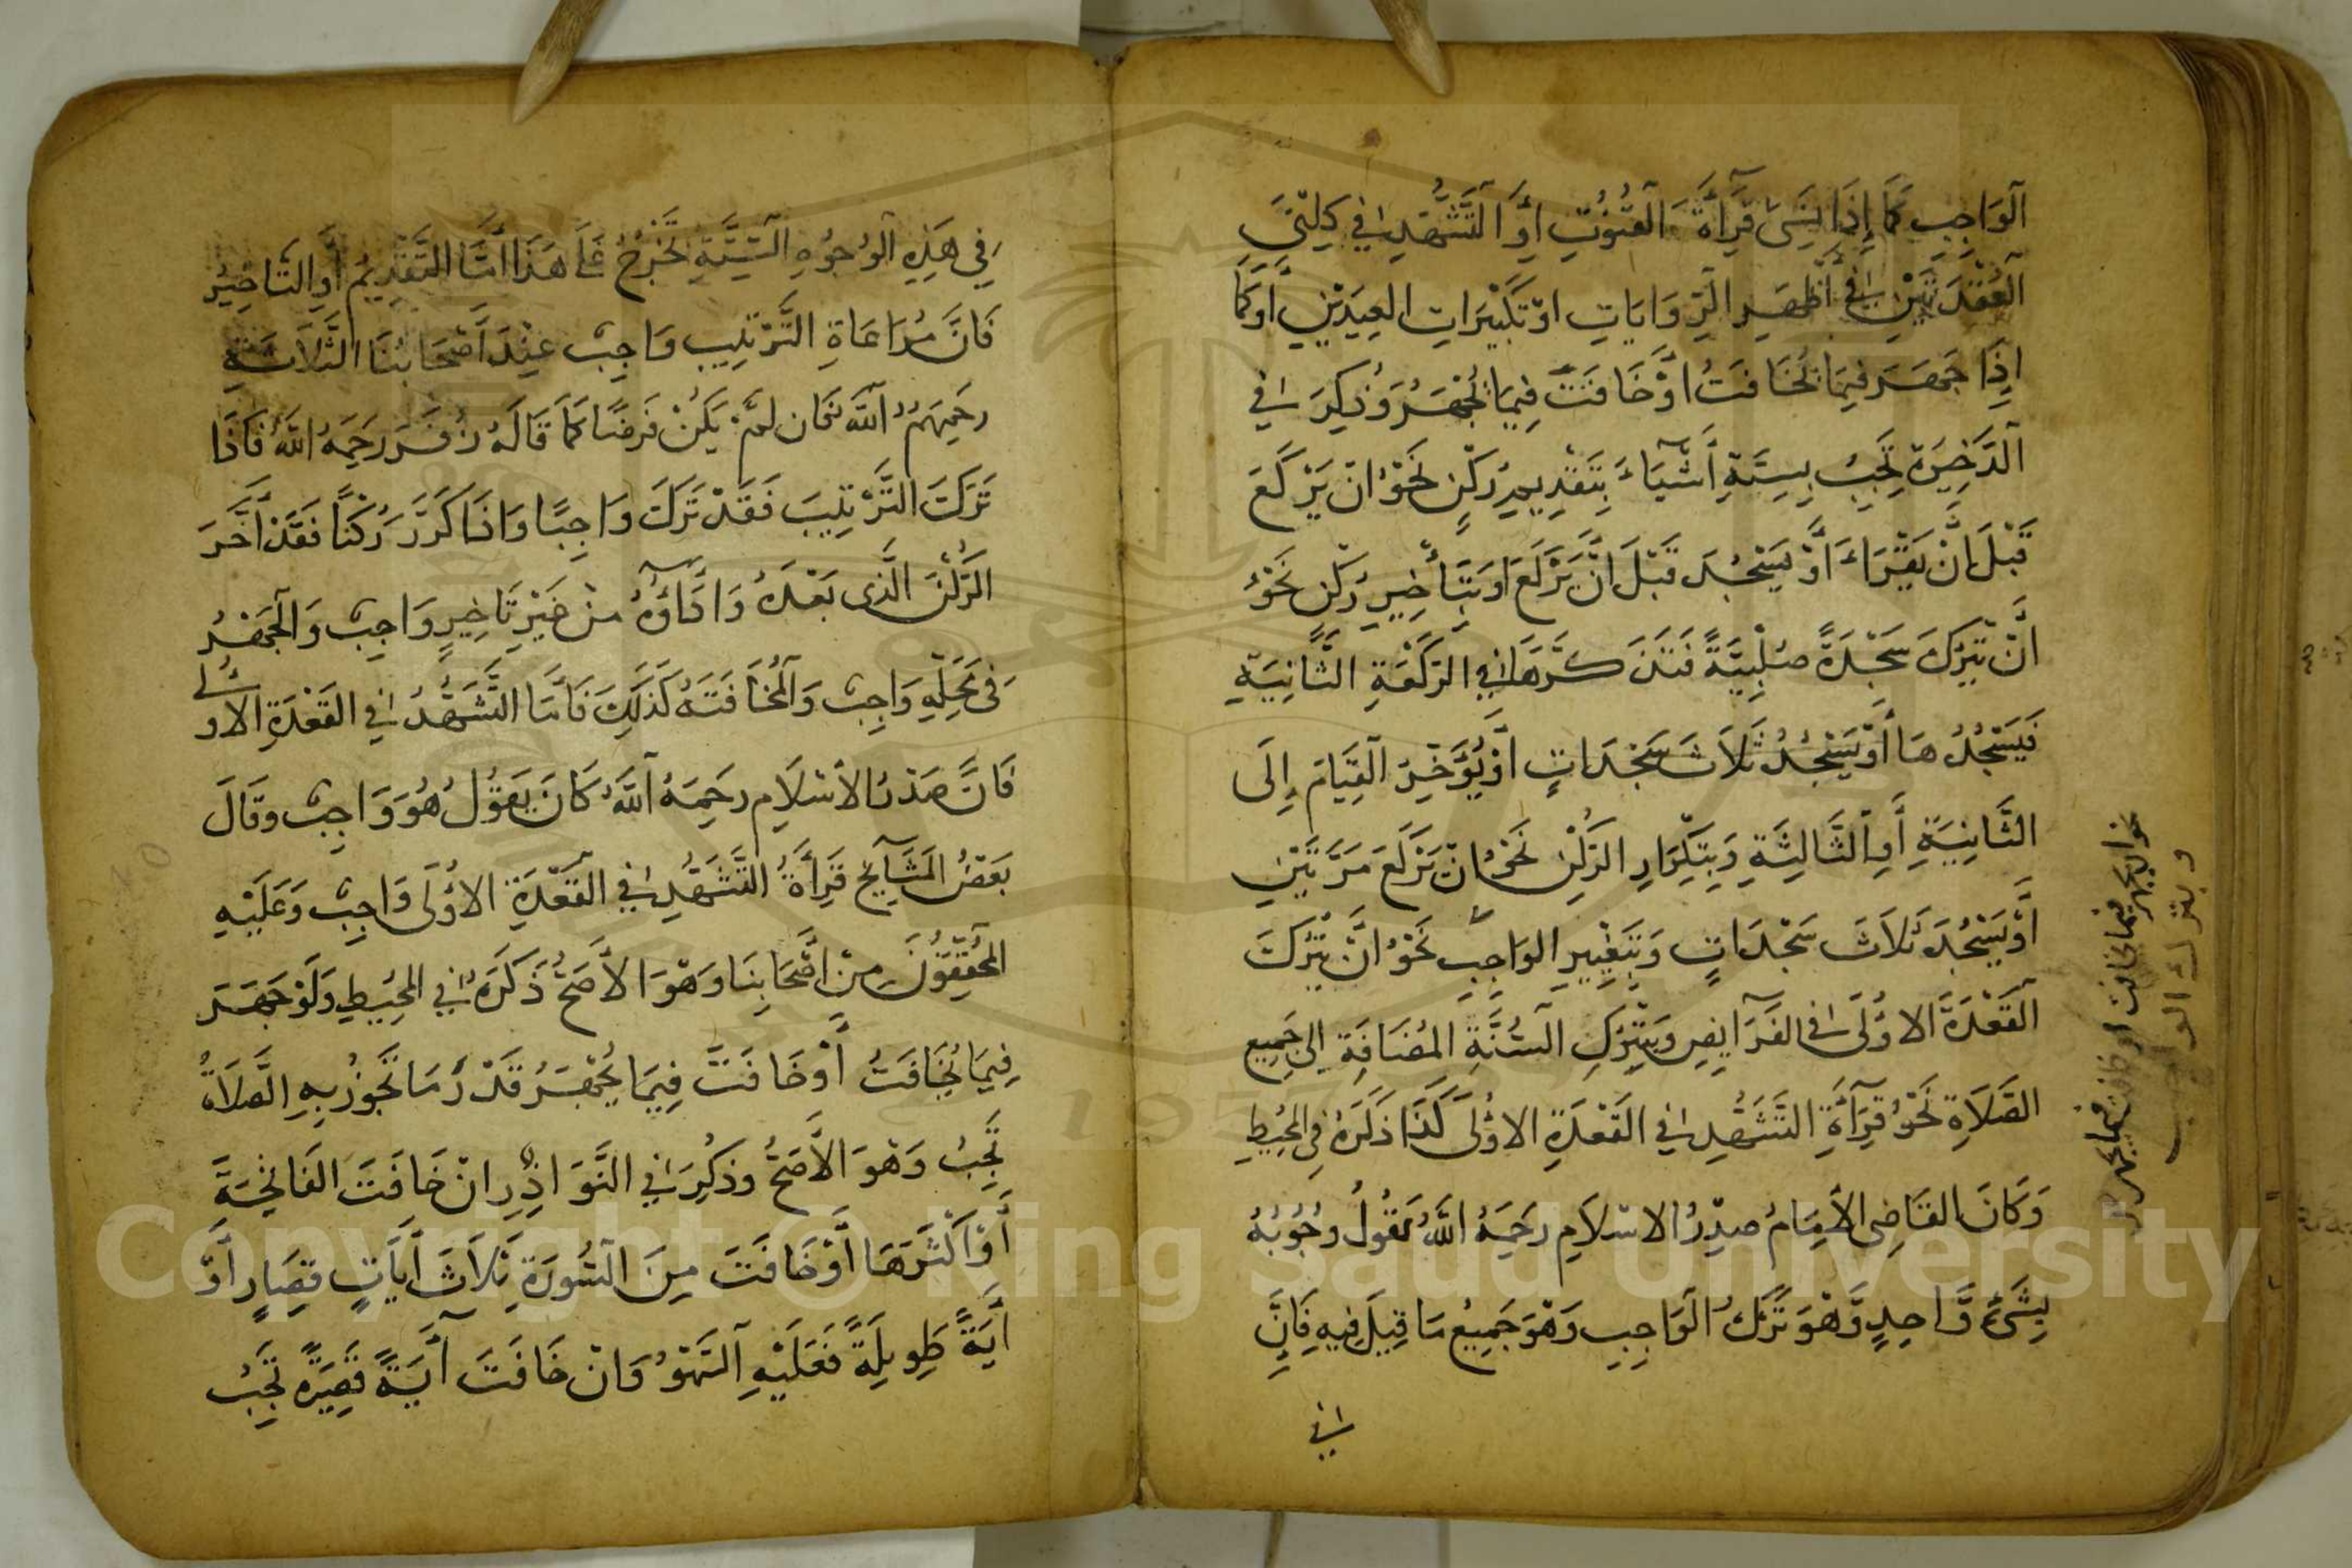 الوَاجِبِ كَمَا إِذَا نَسِيَ قِرَآءَةَ القُنُوتِ اَوِ التَّشَهُّدِ فِي كِلْتَيِ
القَعْدَتَيْنِ فِي أَظْهَرِ الرِّوَايَاتِ اَوْ تَكْبِيرَاتِ العِيدَيْنِ اَوْ كَمَا
اِذَا جَهَرَ فِيمَا يُخَافَتُ اَوْ خَافَتَ فِيمَا يُجْهَرُ وَذُكِرَ فِي
الذَّخِيرَةِ تَجِبُ بِسِتَّةِ أَشْيَآءَ بِتَقْدِيمِ رُكْنٍ نَحْوُ اَنْ يَرْكَعَ
قَبْلَ اَنْ يَقْرَاءَ اَوْ يَسْجُدَ قَبْلَ اَنْ يَرْكَعَ اَوْ بِتَأْخِيرِ رُكْنٍ نَحْوُ
اَنْ يَتْرُكَ سَجْدَةً صُلْبِيَّةً فَتَذَكَّرَهَا فِي الرَّكْعَةِ الثَّانِيَةِ
فَيَسْجُدُهَا أَوْ يَسْجُدُ ثَلَاثَ سَجَدَاتٍ اَوْ يُؤَخِّرَ القِيَامَ إِلَى
الثَّانِيَةِ أَوِ الثَّالِثَةِ وَبِتَكْرَارِ الرُّكْنِ نَحْوُ اَنْ يَرْكَعَ مَرَّتَيْنِ
اَوْ يَسْجُدَ ثَلَاثَ سَجَدَاتٍ وَبِتَغْيِيرِ الوَاجِبِ نَحْوُ اَنْ يَتْرُكَ
القَعْدَةَ الاُولَى فِي الفَرَآيِضِ وَبِتَرْكِ السُّنَّةِ المُضَافَةِ اِلَى جَمِيعِ
الصَّلَاةِ نَحْوُ قِرَآءَةِ التَّشَهُّدِ فِي القَعْدَةِ الاُولَى كَذَا ذَكَرَهُ فِي المُحِيطِ
وَكَانَ القَاضِى الاَمَامُ صَدْرُ الاِسْلَامِ رَحِمَهُ اللَّهُ يَقُولُ وُجُوبُهُ
بِشَىْءٍ وَّاحِدٍ وَّهْوَ تَرْكُ الوَاجِبِ وَهْوَ جَمِيعُ مَا قِيلَ فِيهِ فَاِنَّ
في
نحو ان يجهر فيما يخافت او خافت فيما يجهر
وبترك الواجب
فِي هَذِهِ الوُجُوهِ السِّتَّةِ تَخْرُجُ عَلَى هَذَا اَمَّا التَّقْدِيمُ أَوِ التَّاخِيرُ
فَاَنَّ مُرَاعَاةِ التَّرْتِيبِ وَاجِبٌ عِنْدَ اَصْحَابُنَا الثَّلَاثَةِ
رحَمِهَمُ اللَّهُ فَان لَمْ يَكُنْ فَرضًا كَمَا قَالَهُ زُفَرَ رَحِمَهُ اللَّهُ فَاذَا
تَرَكَتَ التَّرْتِيبَ فَقَدْ تَرَكَ وَاجِبًا وَاذَا كَرَّرَ رُكْنًا فَقَدْ اَخَّرَ
الرُّكْنَ الَّذِى بَعْدَهُ وَادَآؤُهُ مِنْ غَيْرِ تَاخِيرٍ وَاجِبٌ وَالجَهْرُ
فِي مَحَلِّهِ وَاجِبٌ وَالمُخَافَتَهُ كَذَلِكَ فَامَّا التَّشَهُّدُ فِي القَعْدَةِ الاُولى
فَانَّ صَدْرُ الاْسْلَامِ رحَمِهُ اللَّهُ كَانَ يَقُولُ هُوَ وَاجِبٌ وقَالَ
بَعْضُ المَشَآيِخِ قِرَأَةُ التَّشَهُّدِ فِي القَعْدَةِ الاُولَى وَاجِبٌ وَعَلَيْهِ
المُحَقِّقُونَ مِنْ اَصْحَابِنَا وَهْوَ الاَصَحُّ ذَكَرَهُ فِي المُحِيطِ وَلَوْ جَهَرَ
فِيمَا يُخَافَتُ أَوْ خَافَتَ فِيمَا يُجْهَرُ قَدْرَ مَا تَجُوزُ بِهِ الصَّلَاةُ
تَجِبُ وَهْوَ الاَصَحُّ وذُكِرَ فِي النَّوَادِرِ اِنْ خَافَتَ الفَاتِحَةَ
أَوْ اَكْثَرَهَا اَوْ خَافَتَ مِنَ السُّورَةِ ثَلَاثَ اَيَاتٍ قِصَارٍ اَوْ
اَيَةً طَوِيلَةً فَعَلَيْهِ السَّهْوُ وَاِنْ خَافَتَ آيَةً قَصِيَرةً تَجِبُ
Copyright © King Saud University
1957